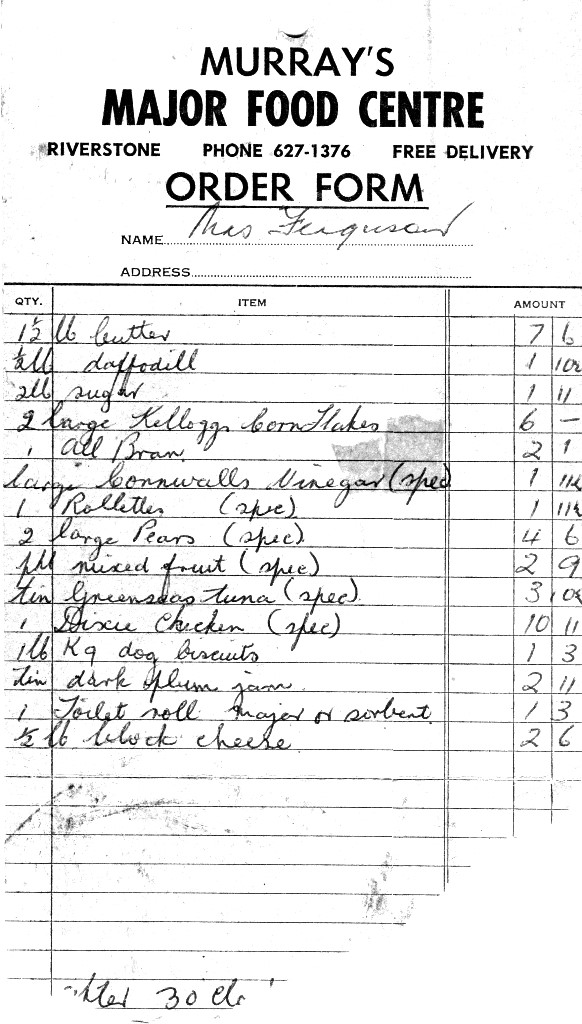 MURRAY'S
MAJOR FOOD CENTRE
RIVERSTONE PHONE 627-1376 FREE DELIVERY
ORDER FORM
NAME Mrs Ferguson
ADDRESS
QTY. ITEM AMOUNT
1½ lb butter 7 6
½ lb daffodill 1 10½
2lb sugar 1 11
2 large Kelloggs Corn Flakes 6 –
1 All Bran 2 1
large Cornwalls Vinegar (spec) 1 11½
1 Rollettes (spec) 1 11½
2 large Pears (spec) 4 6
pkt mixed fruit (spec) 2 9
tin Greenseas tuna (spec) 3 10½
1 Dixie Chicken (spec) 10 11
1lb K9 dog biscuits 1 3
tin dark plum jam 2 11
1 Toilet roll major or sorbent 1 3
½ lb block cheese 2 6
30